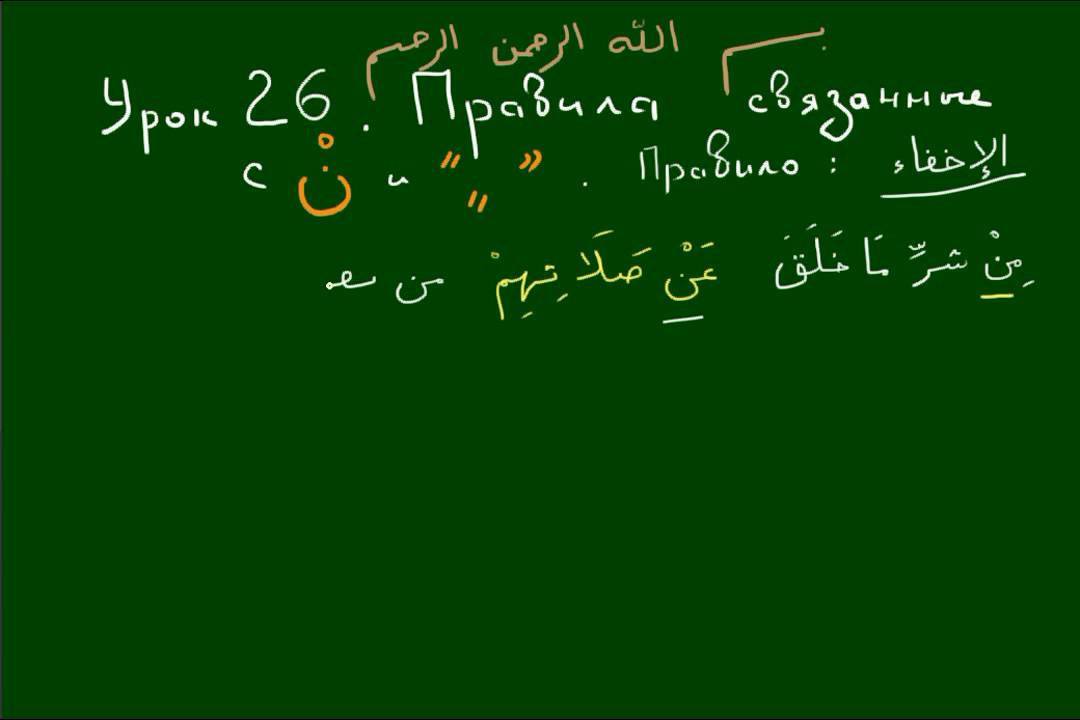 بسم الله الرحمن الرحيم
Урок 26. Правила связанные
с نْ и " " " . Правило: الإخفاء
مِنْ شرِّ مَا خَلَقَ عَنْ صَلَا تِهِمْ من